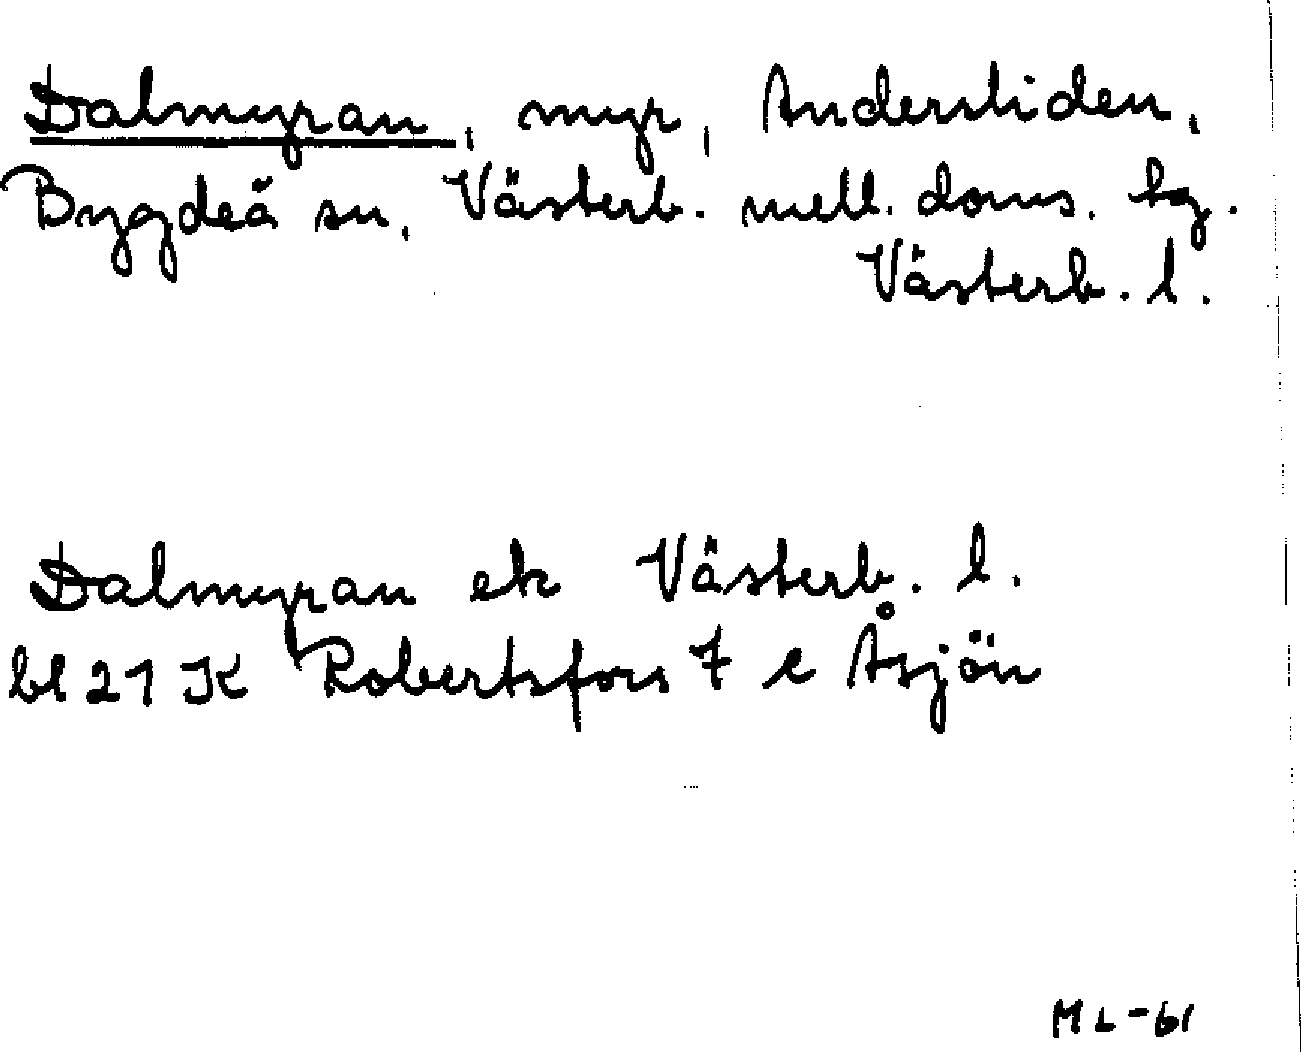 Dalmyran, myr, Andersliden,
Bygdeå sn, Västerb. mell. doms. hg.
Västerb. l.
Dalmyran ek Västerb. l.
bl 21 K Robertsfors 7 e Åsjön
ML-61